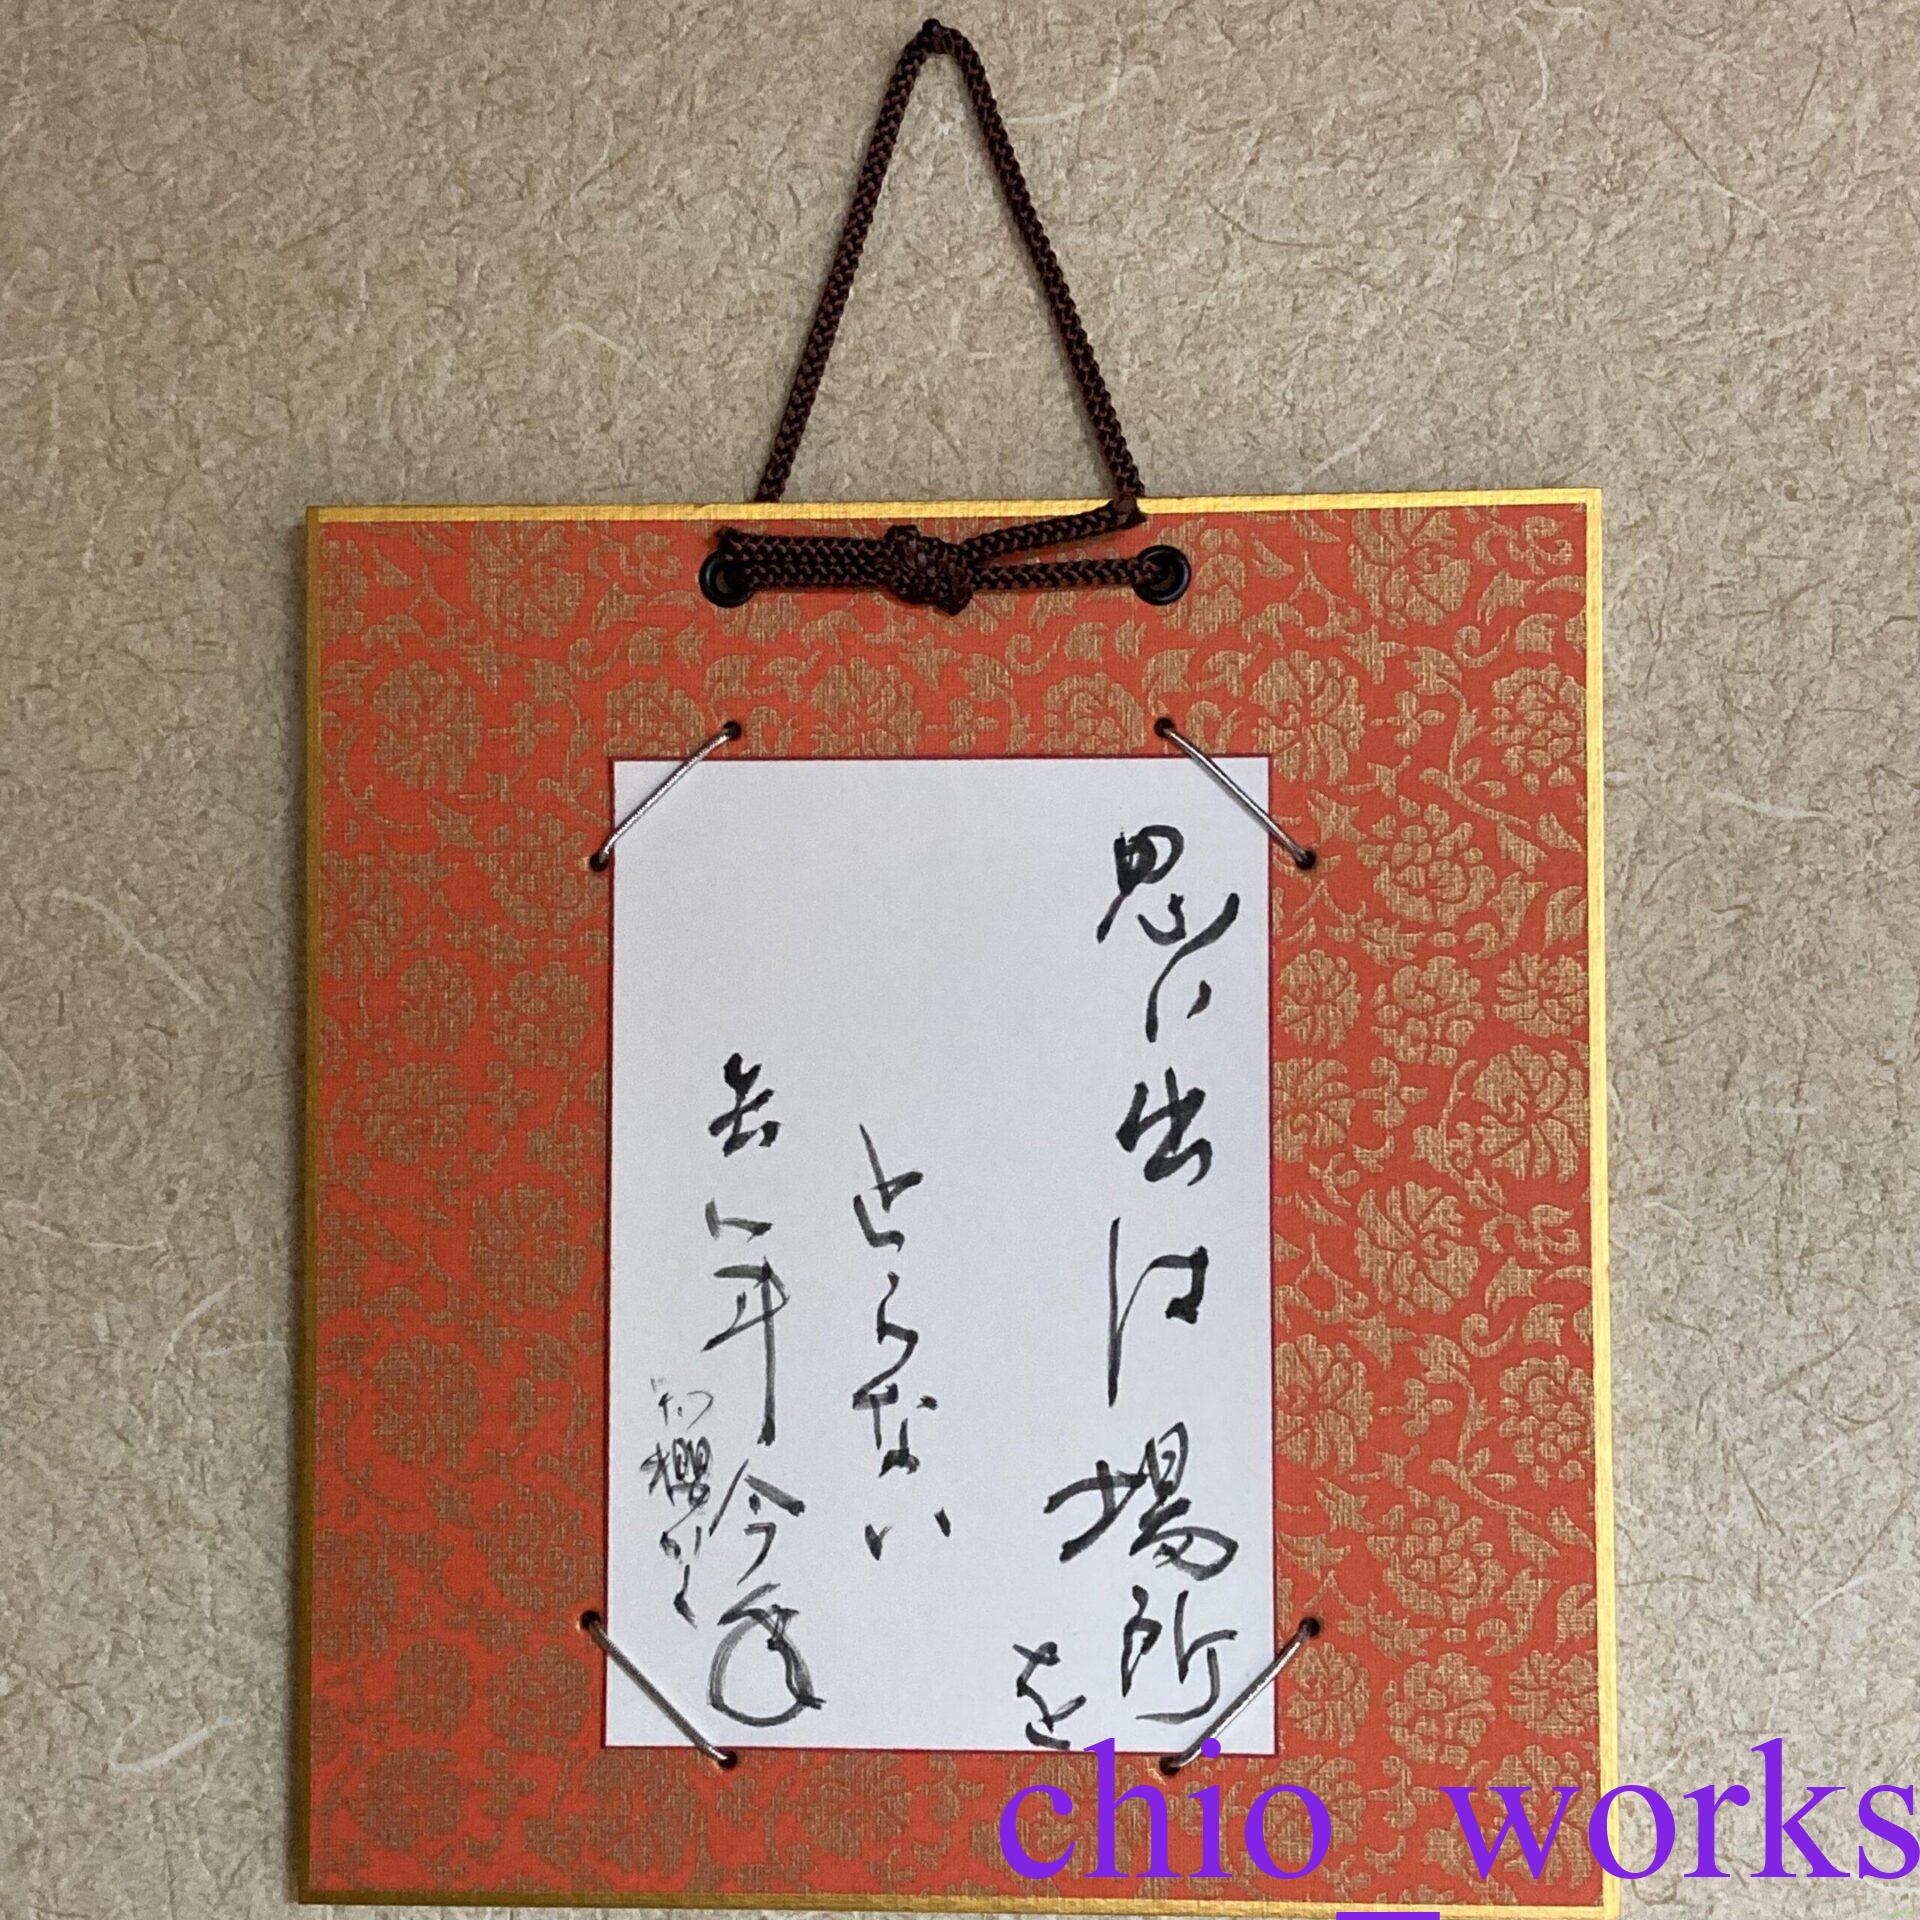 思い出は場所
を
とらない
去年今年
chio_works